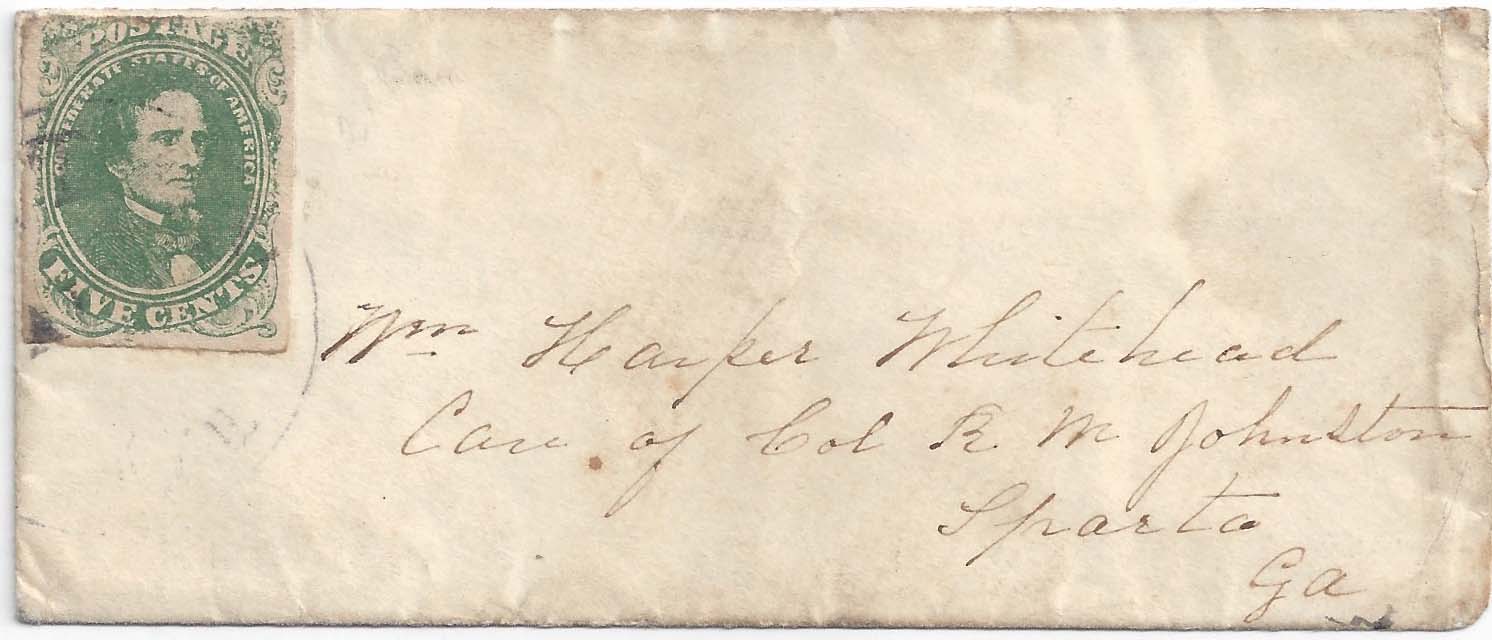 POSTAGE
CONFEDERATE STATES OF AMERICA
FIVE CENTS
Wm Harper Whitehead
Care of Col R. M Johnston
Sparta
Ga